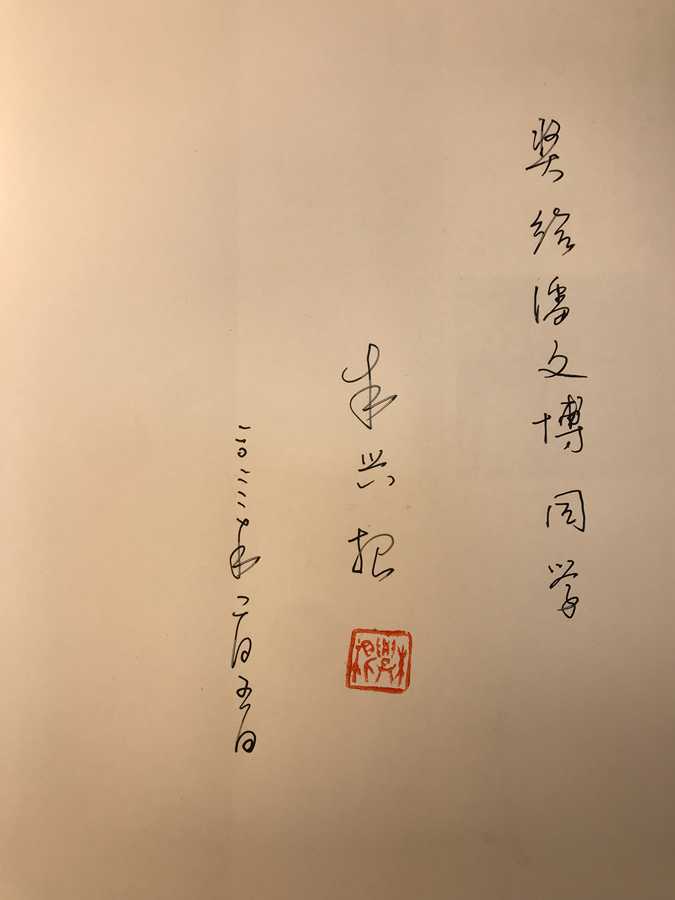 奖给潘文博同学
朱兴根
二〇二二年二月五日